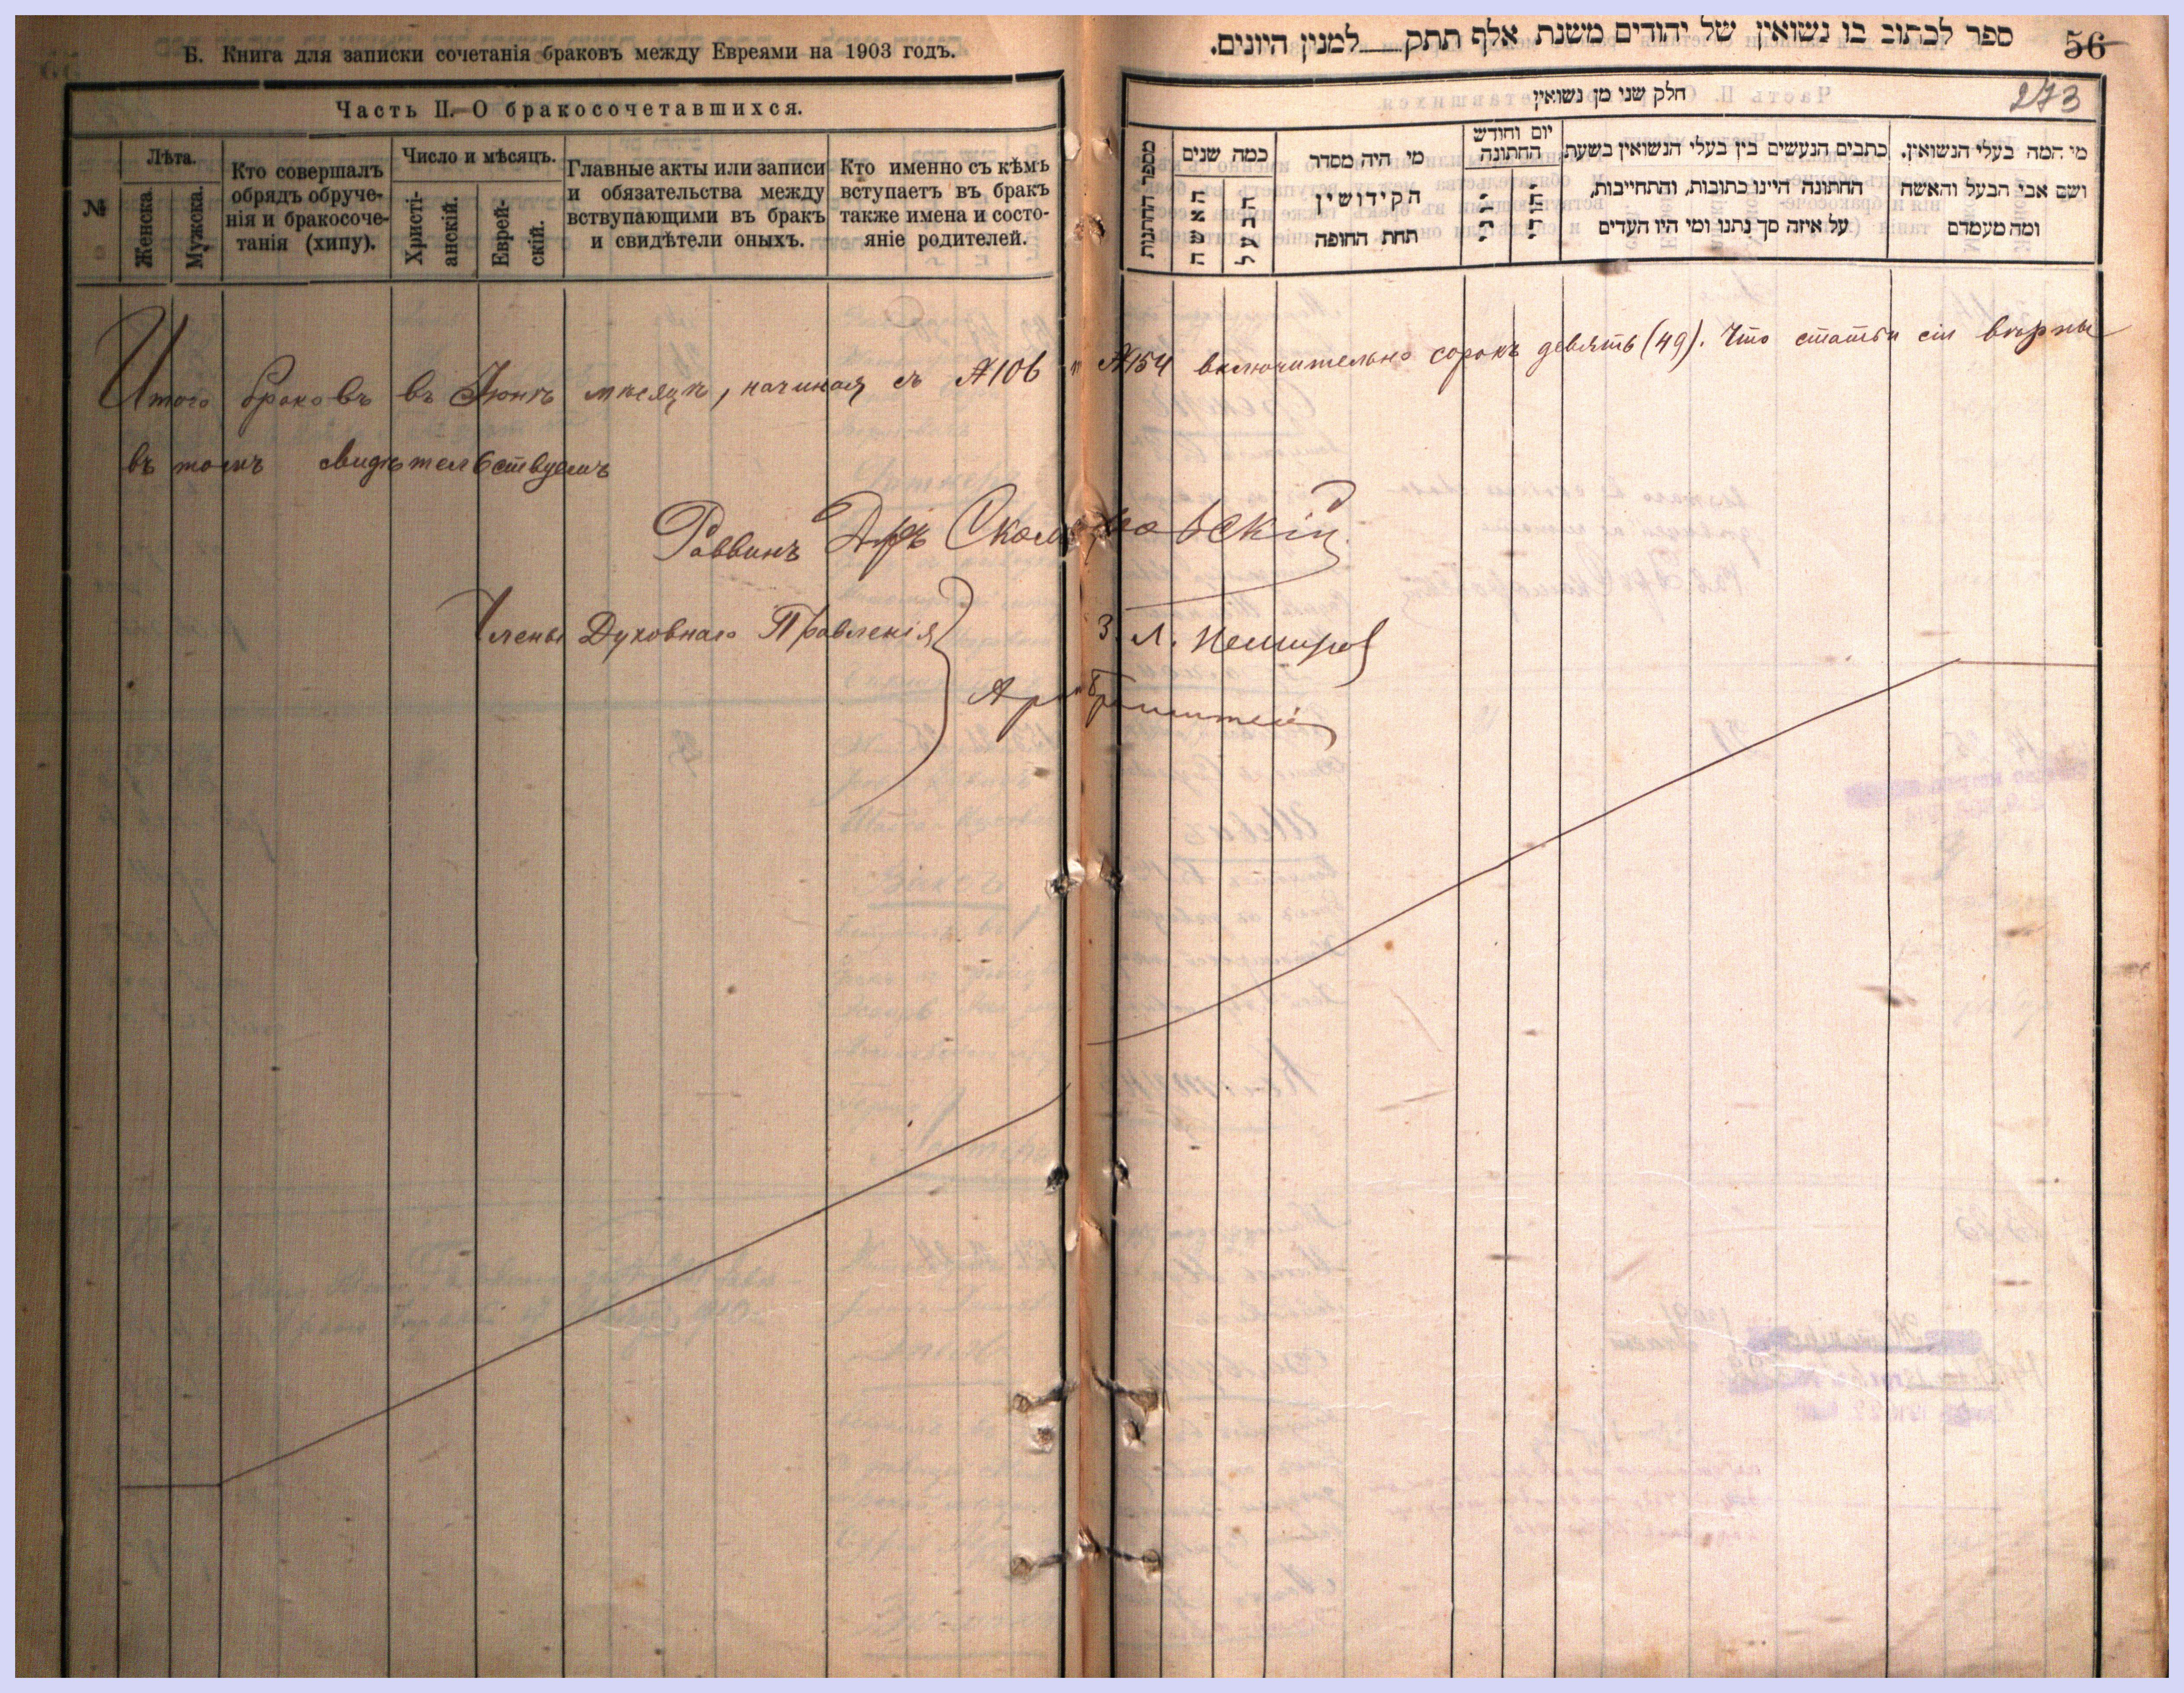 Б. Книга для записки сочетанія браковъ между Евреями на 1903 годъ.
Часть II. О бракосочетавшихся.
№
Лѣта.
Женска.
Мужска.
Кто совершалъ
обрядъ обруче-
нія и бракосоче-
танія (хипу).
Число и мѣсяцъ.
Христі-
анскій.
Еврей-
скій.
Главные акты или записи
и обязательства между
вствупающими въ бракъ
и свидѣтели оныхъ.
Кто именно съ кѣмъ
вступаетъ въ бракъ
также имена и состо-
яніе родителей.
ספר לכתוב בו נשואין של יהודים משנת אלף תתק___למנין היונים.
56
273
חלק שני מן נשואין
מספר החתנות
כמה שנים
האשה
הבעל
מי היה מסדר
הקידושין
תחת החופה
יום וחודש
החתונה
יהודי
כתבים הנעשים בין בעלי הנשואין בשעת
החתונה היינו כתובות, והתחייבות,
על איזה סך נתנו ומי היו העדים
מי המה בעלי הנשואין.
ושם אבי הבעל והאשה
ומה מעמדם
Итого браковъ въ Іюнѣ мѣсяцѣ, начиная съ №106 и №154 включительно сорокъ девять (49). Что статьи сіи вѣрны
въ томъ свидѣтельствуемъ
Раввинъ Д-ръ Скоморовскій
Члены Духовнаго Правленія } З. Л. Немиров